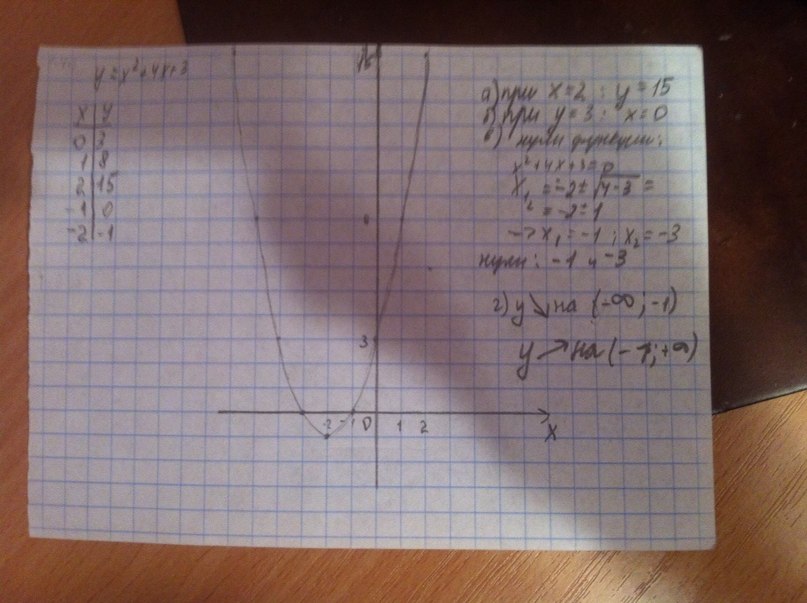 y = x² + 4x + 3
x | y
0 | 3
1 | 8
2 | 15
-1 | 0
-2 | -1
3
-2 -1 0 1 2
x
а) при x=2 : y=15
б) при y=3 : x=0
в) нули функции:
x²+4x+3=0
x₁ = -2 ± √4-3 =
₂ = -2 ± 1
-> x₁ = -1 ; x₂ = -3
нули: -1 и -3
г) y ↘ на (-∞; -1)
y ↗ на (-1; +∞)